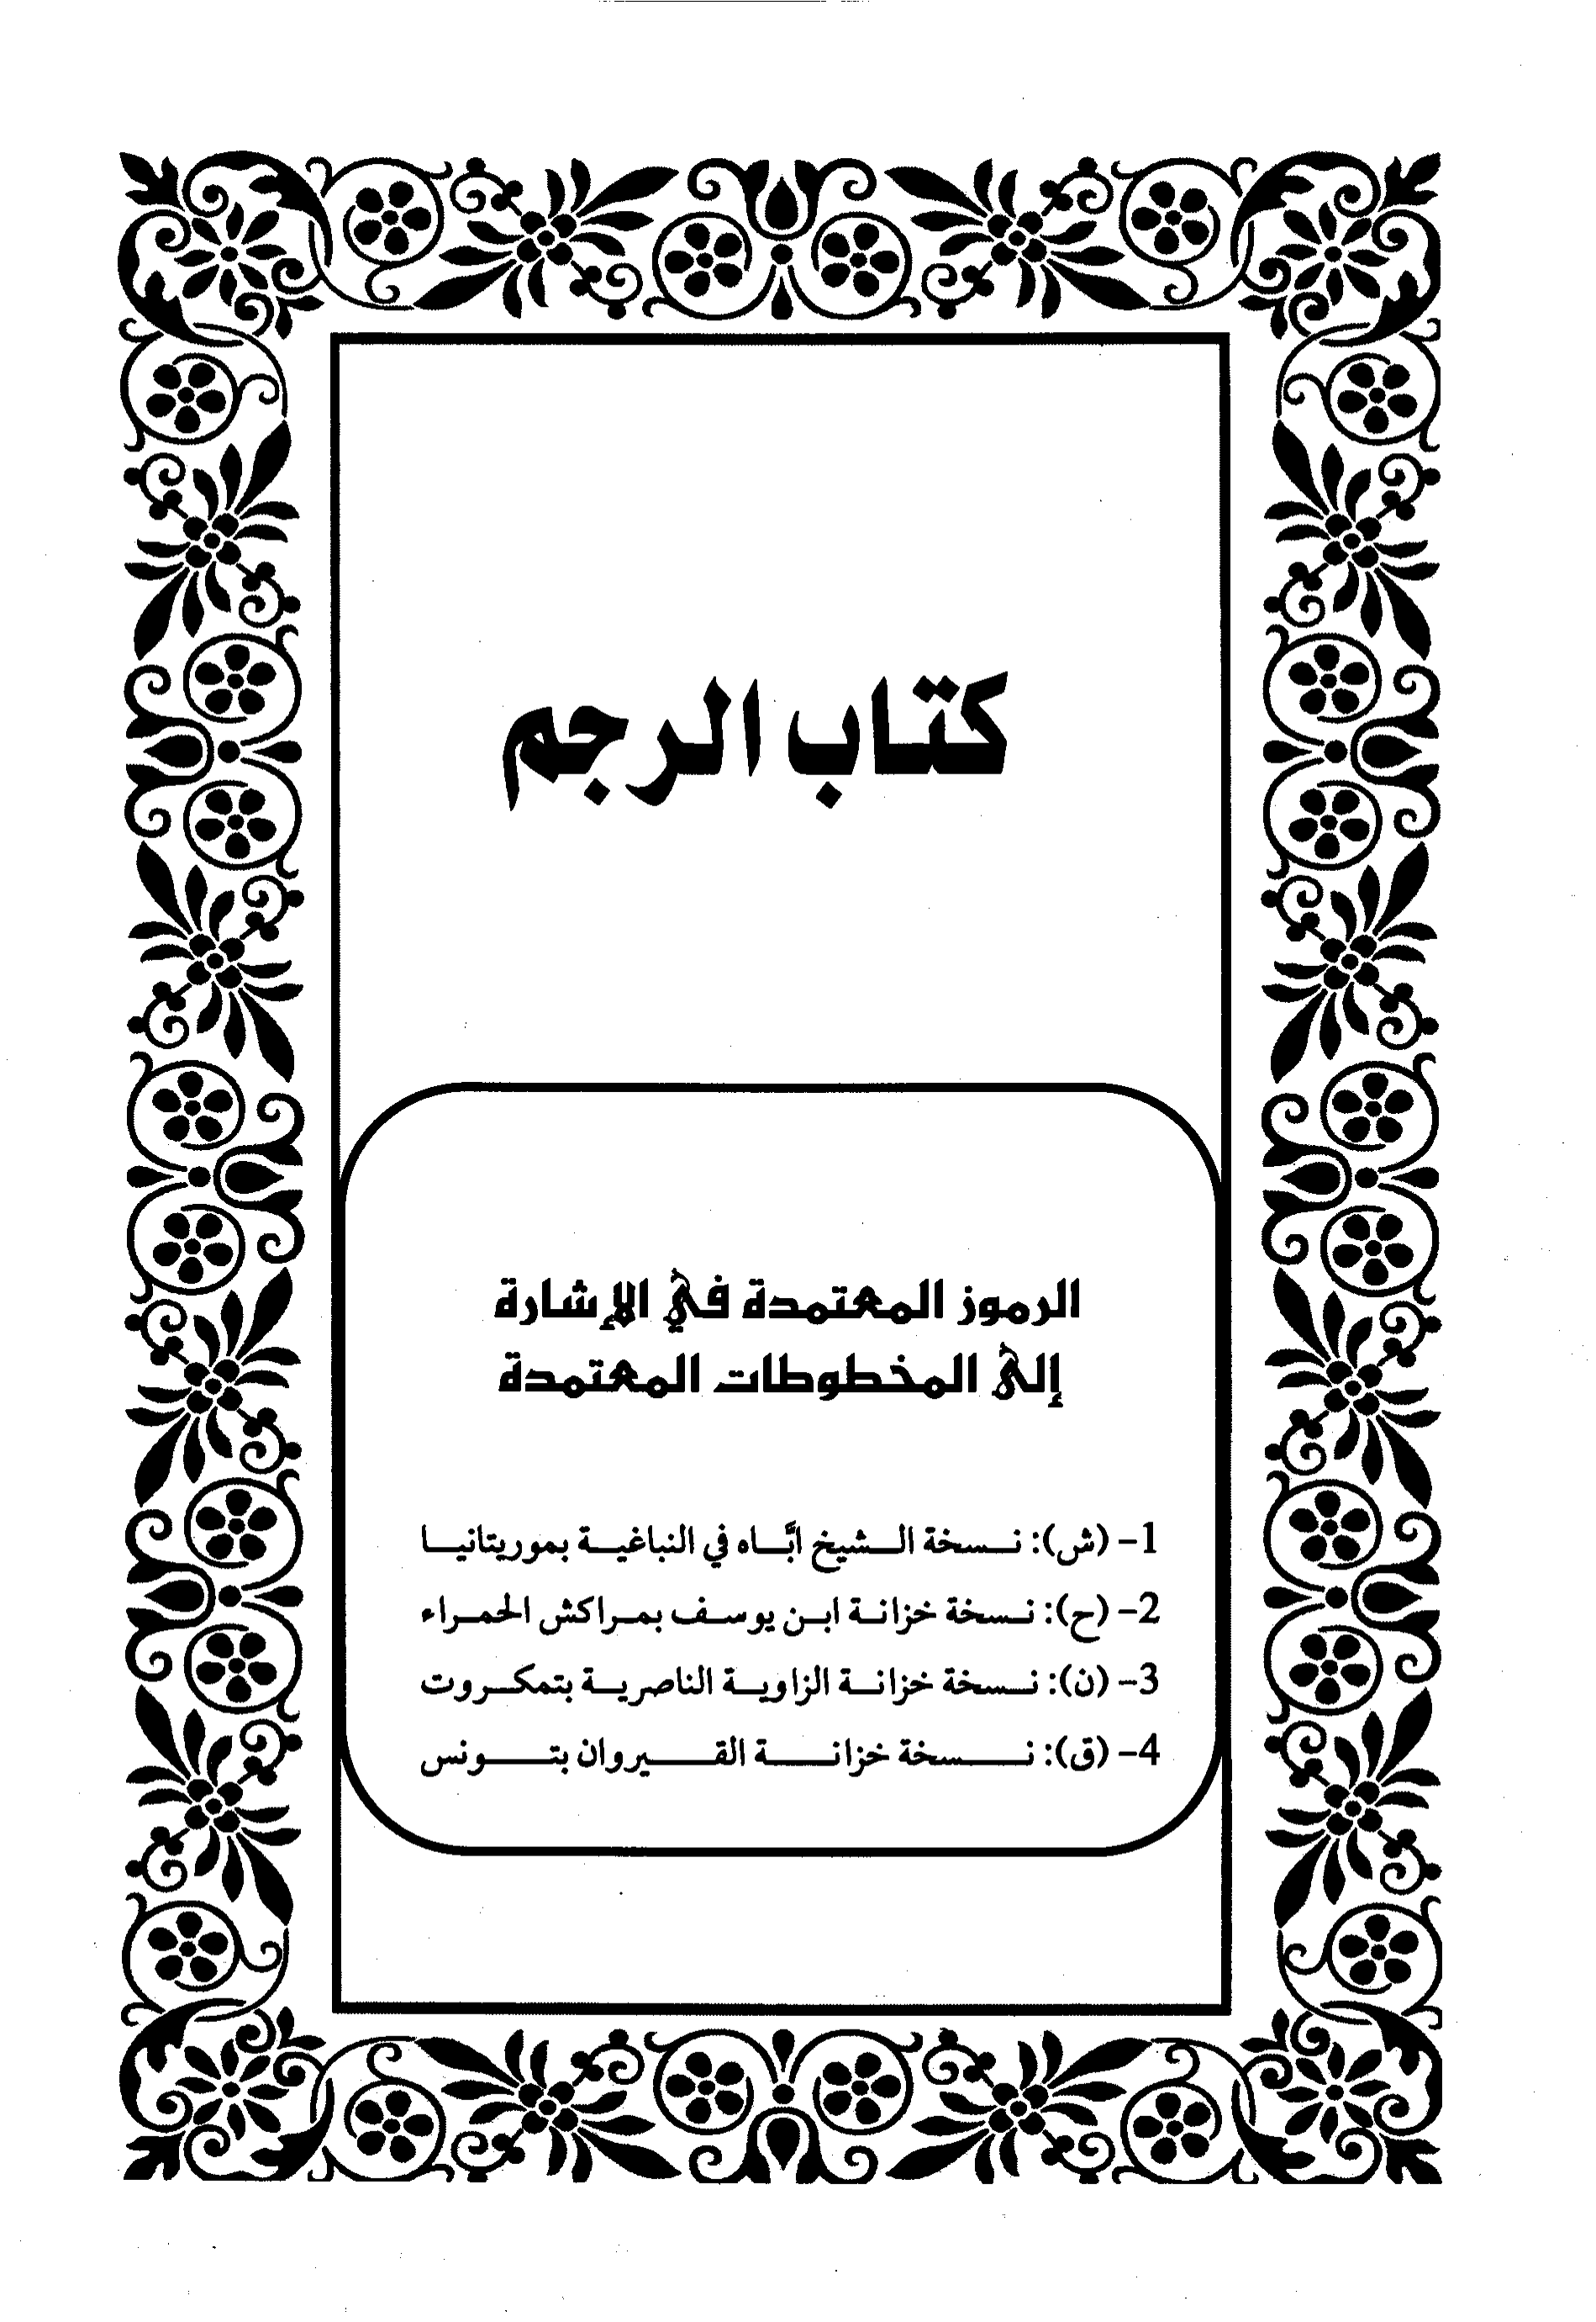 كتاب الرجم
الرموز المعتمدة في الإشارة
إلى المخطوطات المعتمدة
1- (ش): نسخة الشيخ ابَّاه في النباغية بموريتانيا
2- (ح): نسخة خزانة ابن يوسف بمراكش الحمراء
3- (ن): نسخة خزانة الزاوية الناصرية بتمكروت
4- (ق): نسخة خزانة القيروان بتونس